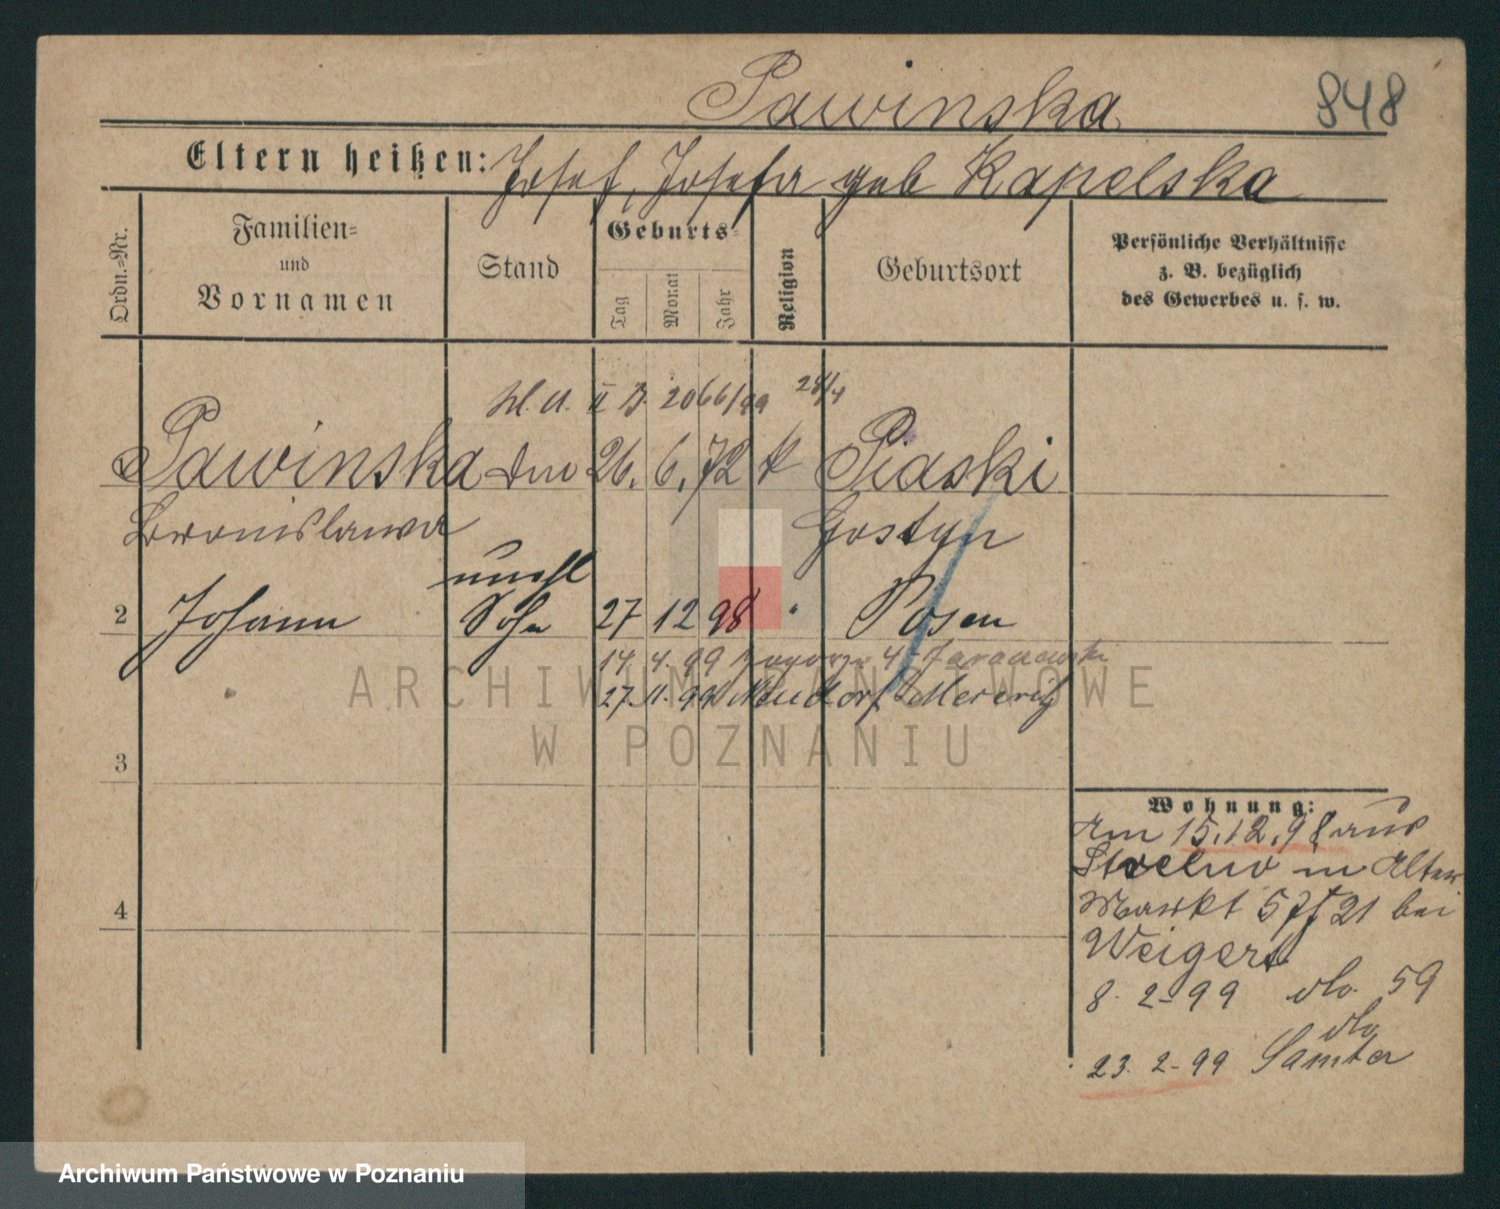 Pawinska
848
Eltern heißen: Josef, Josefa geb Kapelska
Ordn.=Nr.
Familien=
und
Vornamen
Stand
Geburts=
Tag
Monat
Jahr
Religion
Geburtsort
Persönliche Verhältnisse
z. B. bezüglich
des Gewerbes u. s. w.
II B. 2066/99
Pawinska 26. 6. 72 k Piaski
Bronislawa Gostyn
unehl
2 Johann Sohn 27 12 98 " Posen
14. 4. 99
27. 11. 99 Neudorf
3
4
Wohnung:
Am 15.12.98 aus
Strelno in Alter
Markt 57 21 bei
Weigert
8. 2-99 do. 59
do
23. 2-99 Samter
ARCHIWUM PAŃSTWOWE
W POZNANIU
Archiwum Państwowe w Poznaniu